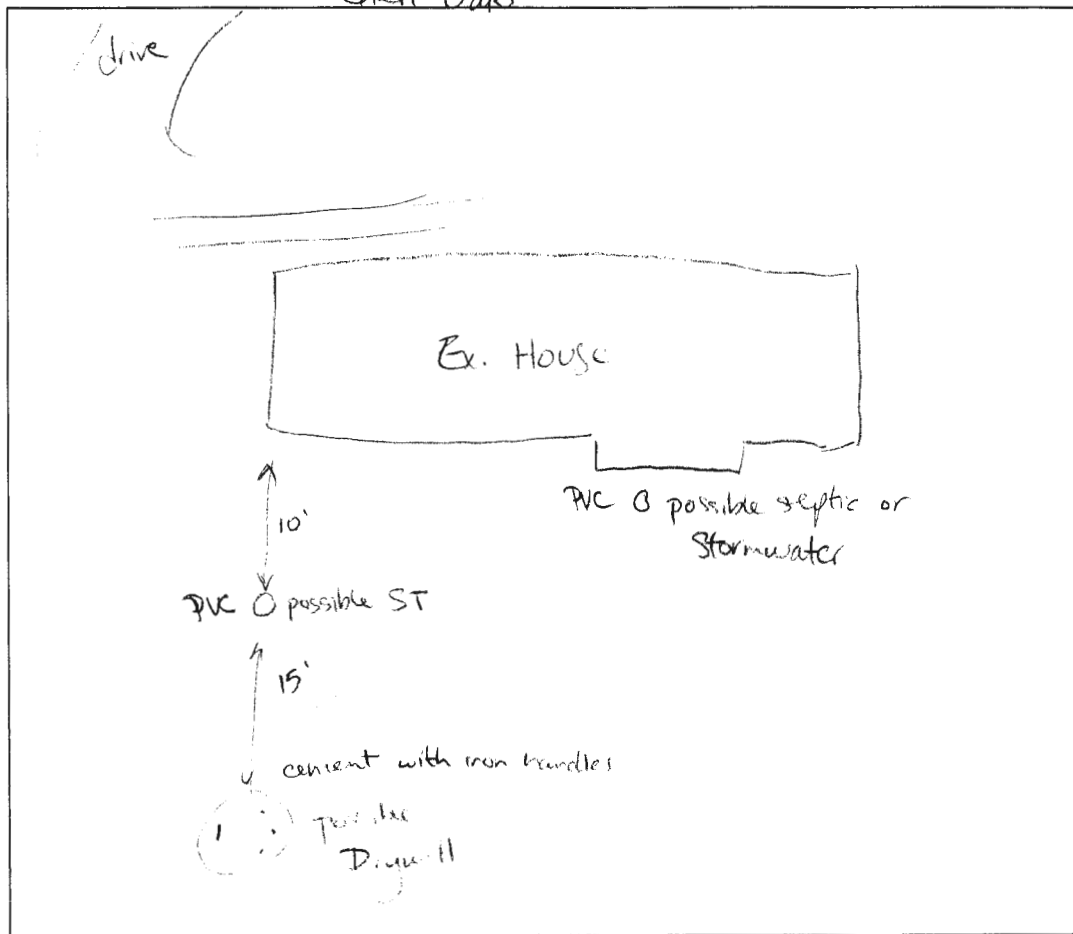 drive
Ex. House
10'
PVC O possible septic or
Stormwater
PVC O possible ST
15'
cement with iron handles
possible
Drywell